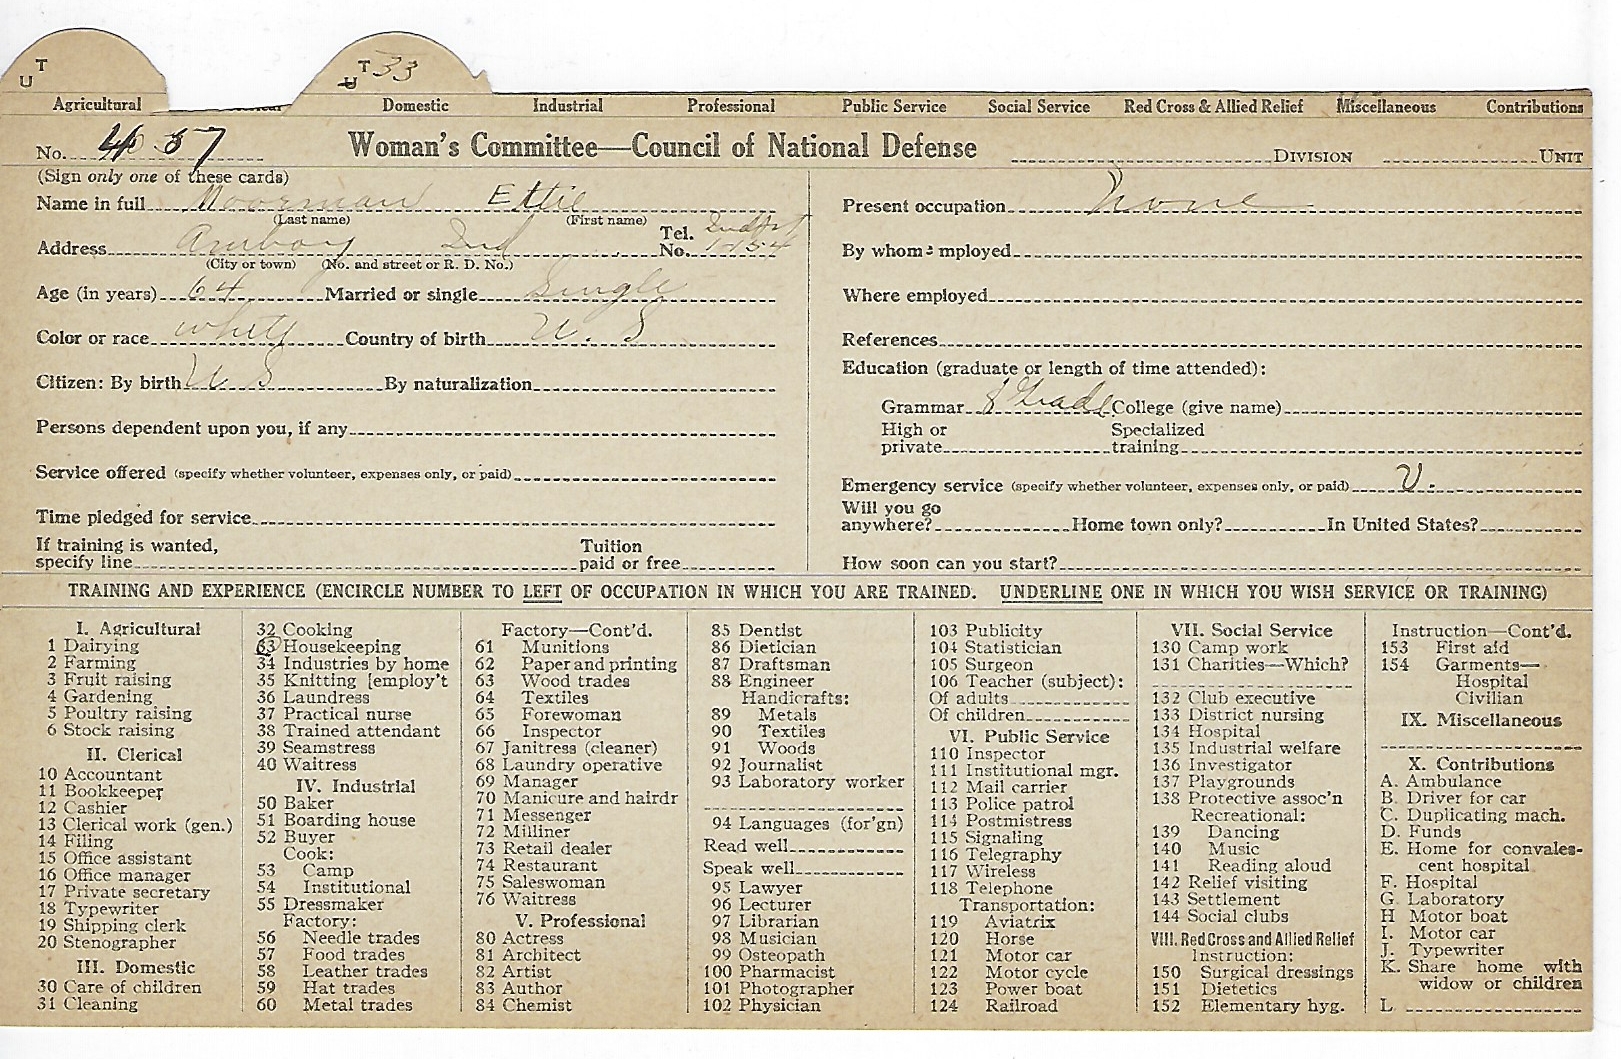 T
U
T 33
U
Agricultural Domestic Industrial Professional Public Service Social Service Red Cross & Allied Relief Miscellaneous Contributions
No. Woman's Committee—Council of National Defense DIVISION UNIT
(Sign only one of these cards)
Name in full Moorman Ettie
(Last name) (First name)
Address Amboy 2nd Tel. No.
(City or town) (No. and street or R. D. No.)
Age (in years) 64 Married or single Single
Color or race white Country of birth U. S
Citizen: By birth U S By naturalization
Persons dependent upon you, if any
Service offered (specify whether volunteer, expenses only, or paid)
Time pledged for service
If training is wanted,
specify line Tuition
paid or free
Present occupation none
By whom employed
Where employed
References
Education (graduate or length of time attended):
Grammar 8 Grade College (give name)
High or
private Specialized
training
Emergency service (specify whether volunteer, expenses only, or paid) V.
Will you go
anywhere? Home town only? In United States?
How soon can you start?
TRAINING AND EXPERIENCE (ENCIRCLE NUMBER TO LEFT OF OCCUPATION IN WHICH YOU ARE TRAINED. UNDERLINE ONE IN WHICH YOU WISH SERVICE OR TRAINING)
I. Agricultural
1 Dairying
2 Farming
3 Fruit raising
4 Gardening
5 Poultry raising
6 Stock raising
II. Clerical
10 Accountant
11 Bookkeeper
12 Cashier
13 Clerical work (gen.)
14 Filing
15 Office assistant
16 Office manager
17 Private secretary
18 Typewriter
19 Shipping clerk
20 Stenographer
III. Domestic
30 Care of children
31 Cleaning
32 Cooking
33 Housekeeping
34 Industries by home
35 Knitting [employ't
36 Laundress
37 Practical nurse
38 Trained attendant
39 Seamstress
40 Waitress
IV. Industrial
50 Baker
51 Boarding house
52 Buyer
Cook:
53 Camp
54 Institutional
55 Dressmaker
Factory:
56 Needle trades
57 Food trades
58 Leather trades
59 Hat trades
60 Metal trades
Factory—Cont'd.
61 Munitions
62 Paper and printing
63 Wood trades
64 Textiles
65 Forewoman
66 Inspector
67 Janitress (cleaner)
68 Laundry operative
69 Manager
70 Manicure and hairdr
71 Messenger
72 Milliner
73 Retail dealer
74 Restaurant
75 Saleswoman
76 Waitress
V. Professional
80 Actress
81 Architect
82 Artist
83 Author
84 Chemist
85 Dentist
86 Dietician
87 Draftsman
88 Engineer
Handicrafts:
89 Metals
90 Textiles
91 Woods
92 Journalist
93 Laboratory worker
94 Languages (for'gn)
Read well
Speak well
95 Lawyer
96 Lecturer
97 Librarian
98 Musician
99 Osteopath
100 Pharmacist
101 Photographer
102 Physician
103 Publicity
104 Statistician
105 Surgeon
106 Teacher (subject):
Of adults
Of children
VI. Public Service
110 Inspector
111 Institutional mgr.
112 Mail carrier
113 Police patrol
114 Postmistress
115 Signaling
116 Telegraphy
117 Wireless
118 Telephone
Transportation:
119 Aviatrix
120 Horse
121 Motor car
122 Motor cycle
123 Power boat
124 Railroad
VII. Social Service
130 Camp work
131 Charities—Which?
132 Club executive
133 District nursing
134 Hospital
135 Industrial welfare
136 Investigator
137 Playgrounds
138 Protective assoc'n
Recreational:
139 Dancing
140 Music
141 Reading aloud
142 Relief visiting
143 Settlement
144 Social clubs
VIII. Red Cross and Allied Relief
Instruction:
150 Surgical dressings
151 Dietetics
152 Elementary hyg.
Instruction—Cont'd.
153 First aid
154 Garments—
Hospital
Civilian
IX. Miscellaneous
X. Contributions
A. Ambulance
B. Driver for car
C. Duplicating mach.
D. Funds
E. Home for convales-
cent hospital
F. Hospital
G. Laboratory
H Motor boat
I. Motor car
J. Typewriter
K. Share home with
widow or children
L